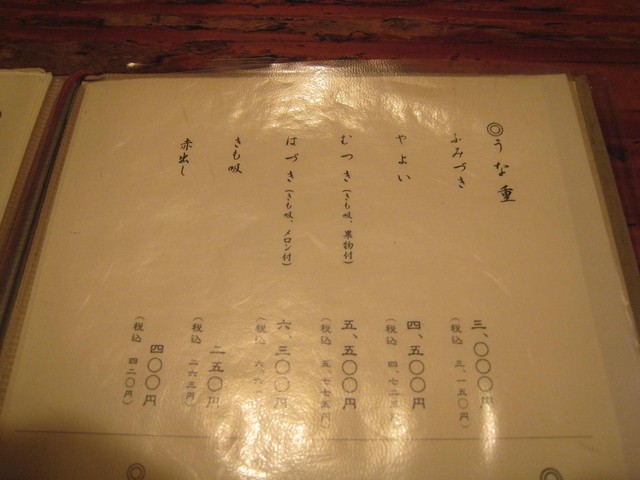 ◎うな重
ふみづき 三、〇〇〇円
（税込 三、一五〇円）
やよい 四、五〇〇円
（税込 四、七二
むつき（きも吸、果物付） 五、五〇〇円
（税込 五、七七五円）
はづき（きも吸、メロン付） 六、三〇〇円
（税込 六、六
きも吸 二五〇円
（税込 二六三円）
赤出し 四〇〇円
（税込 四二〇円）
◎
◎